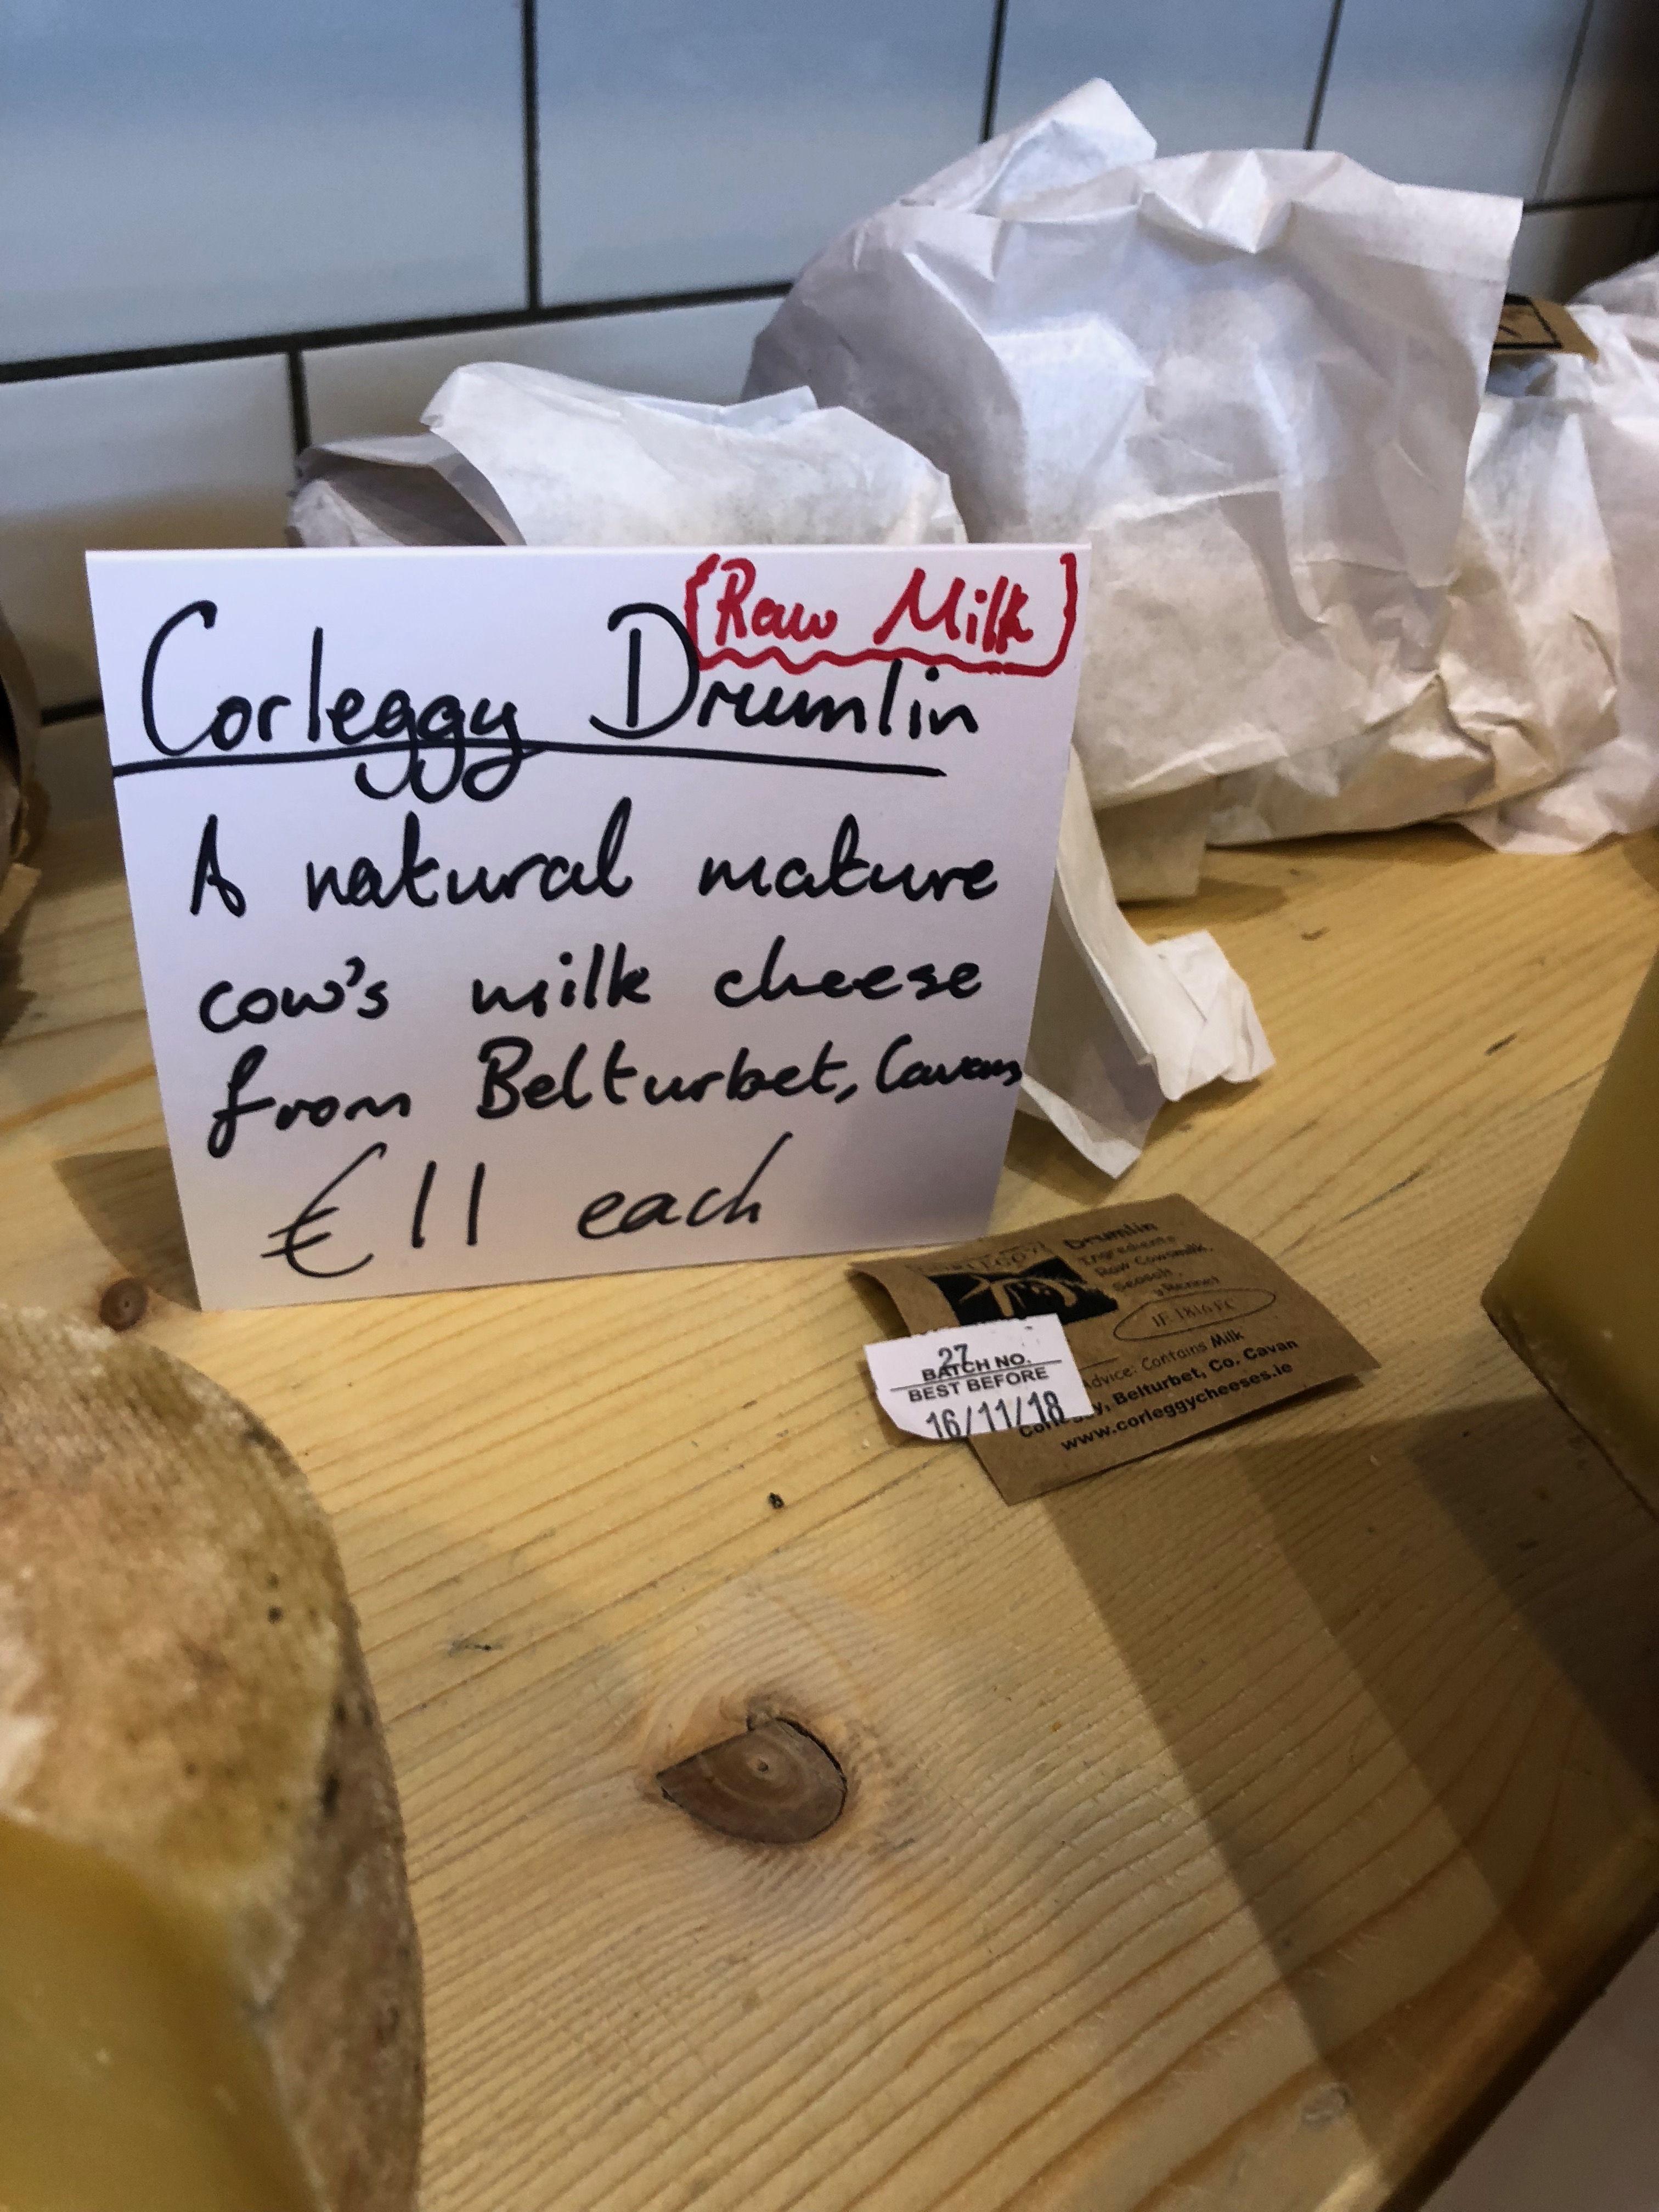 (Raw Milk)
Corleggy Drumlin
A natural mature
cow's milk cheese
from Belturbet, Cavan
€11 each
Drumlin
Ingredients
Raw Cowsmilk,
Rennet
27
BATCH NO.
BEST BEFORE
16/11/18
Advice: Contains Milk
Belturbet, Co. Cavan
www.corleggycheeses.ie